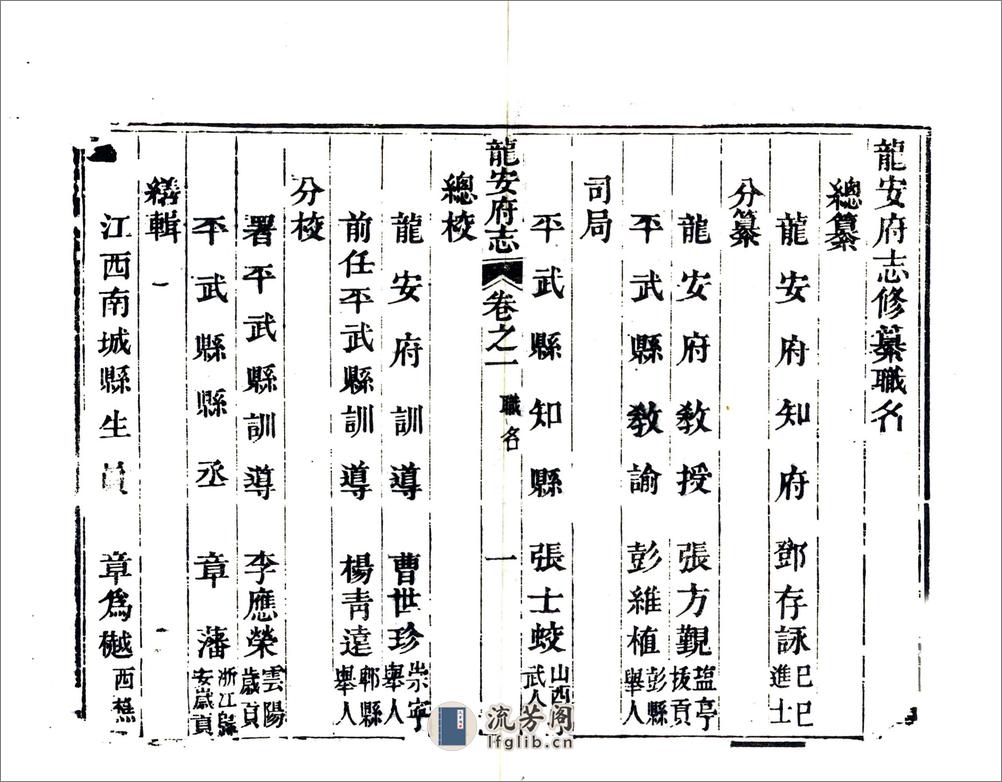 龍安府志修纂職名
總纂
龍安府知府 鄧存詠 己巳進士
分纂
龍安府教授 張方覲 盐亭拔貢
平武縣教諭 彭維植 彭縣舉人
司局
平武縣知縣 張士蛟 山西武人
龍安府志 卷之一 職名 一
總校
龍安府訓導 曹世珍 崇寧舉人
前任平武縣訓導 楊青達 郫縣舉人
分校
署平武縣訓導 李應榮 雲陽歲貢
平武縣縣丞 章藩 浙江歸安歲貢
繕輯
江西南城縣生員 章為樾 西樵
流芳阁
lfglib.cn